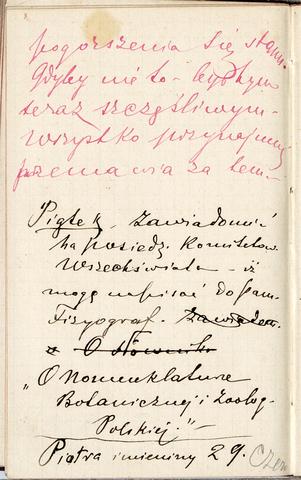 pogorszenia się stanu.
Gdyby nie to - byłbym
teraz szczęśliwym -
wszystko przynajmniej
przemawia za tem -
Piątek, zawiadomić
na posiedz. Komitetow.
Wszechświata - iż
mogę napisać do Pam.
Fizyograf.
O Słownik
"O Nomenklaturze
Botanicznej i Zoolog.
Polskiej." -
Piotra imieniny 29. Czer